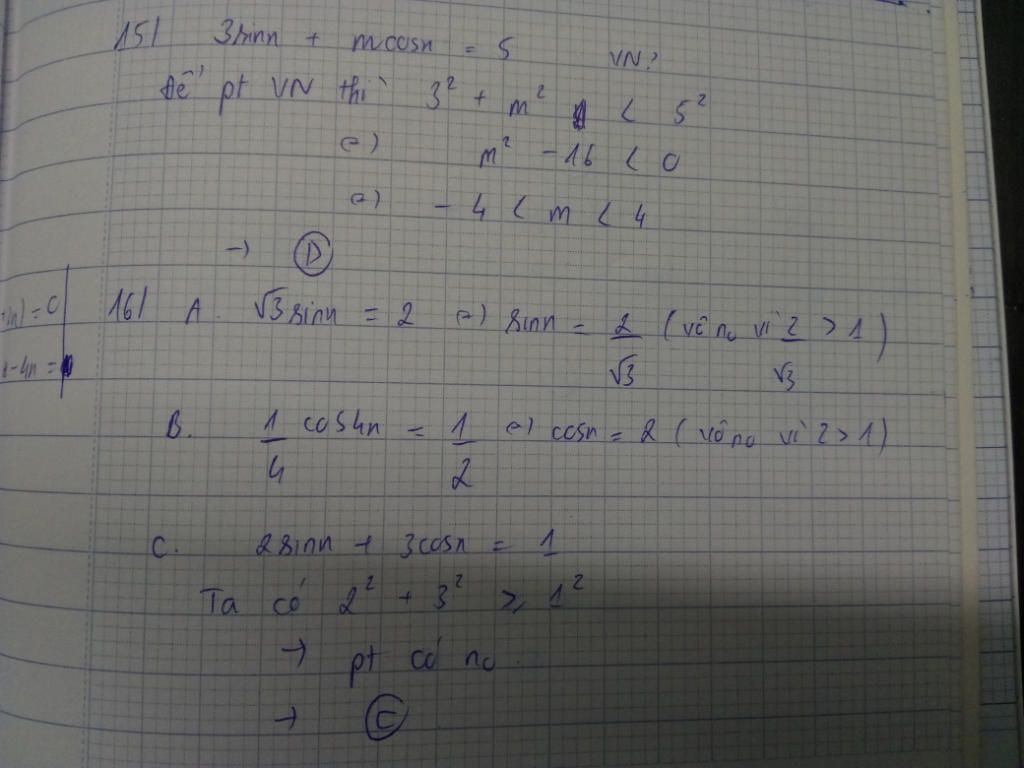 15/ 3sinx + mcosx = 5 VN?
Để pt VN thì 3² + m² < 5²
(=) m² - 16 < 0
(=) - 4 < m < 4
→ (D)
16/ A. √3sinx = 2 (=) sinx = 2/√3 (vô no vì 2/√3 > 1)
= 0
-4x =
B. 1/4 cos4x = 1/2 (=) cosx = 2 (vô no vì 2 > 1)
C. 2sinx + 3cosx = 1
Ta có 2² + 3² ≥ 1²
→ pt có no
→ (C)